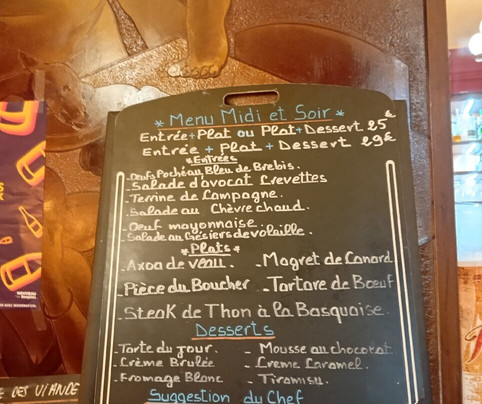 * Menu Midi et Soir *
Entrée+Plat ou Plat+Dessert 25€
Entrée + Plat + Dessert 29€
*Entrées
- Oeufs Poché au Bleu de Brebis.
- Salade d'avocat Crevettes
- Terrine de Campagne.
- Salade au Chèvre chaud.
- Oeuf mayonnaise.
- Salade au Gésiers de volaille.
*Plats*
- Axoa de veau. - Magret de Canard
- Pièce du Boucher - Tartare de Bœuf
- Steak de Thon à la Basquaise.
Desserts
- Tarte du jour. - Mousse au chocolat
- Crème Brulée - Creme Caramel.
- Fromage Blanc - Tiramisu.
Suggestion du Chef
E DES VIANDE